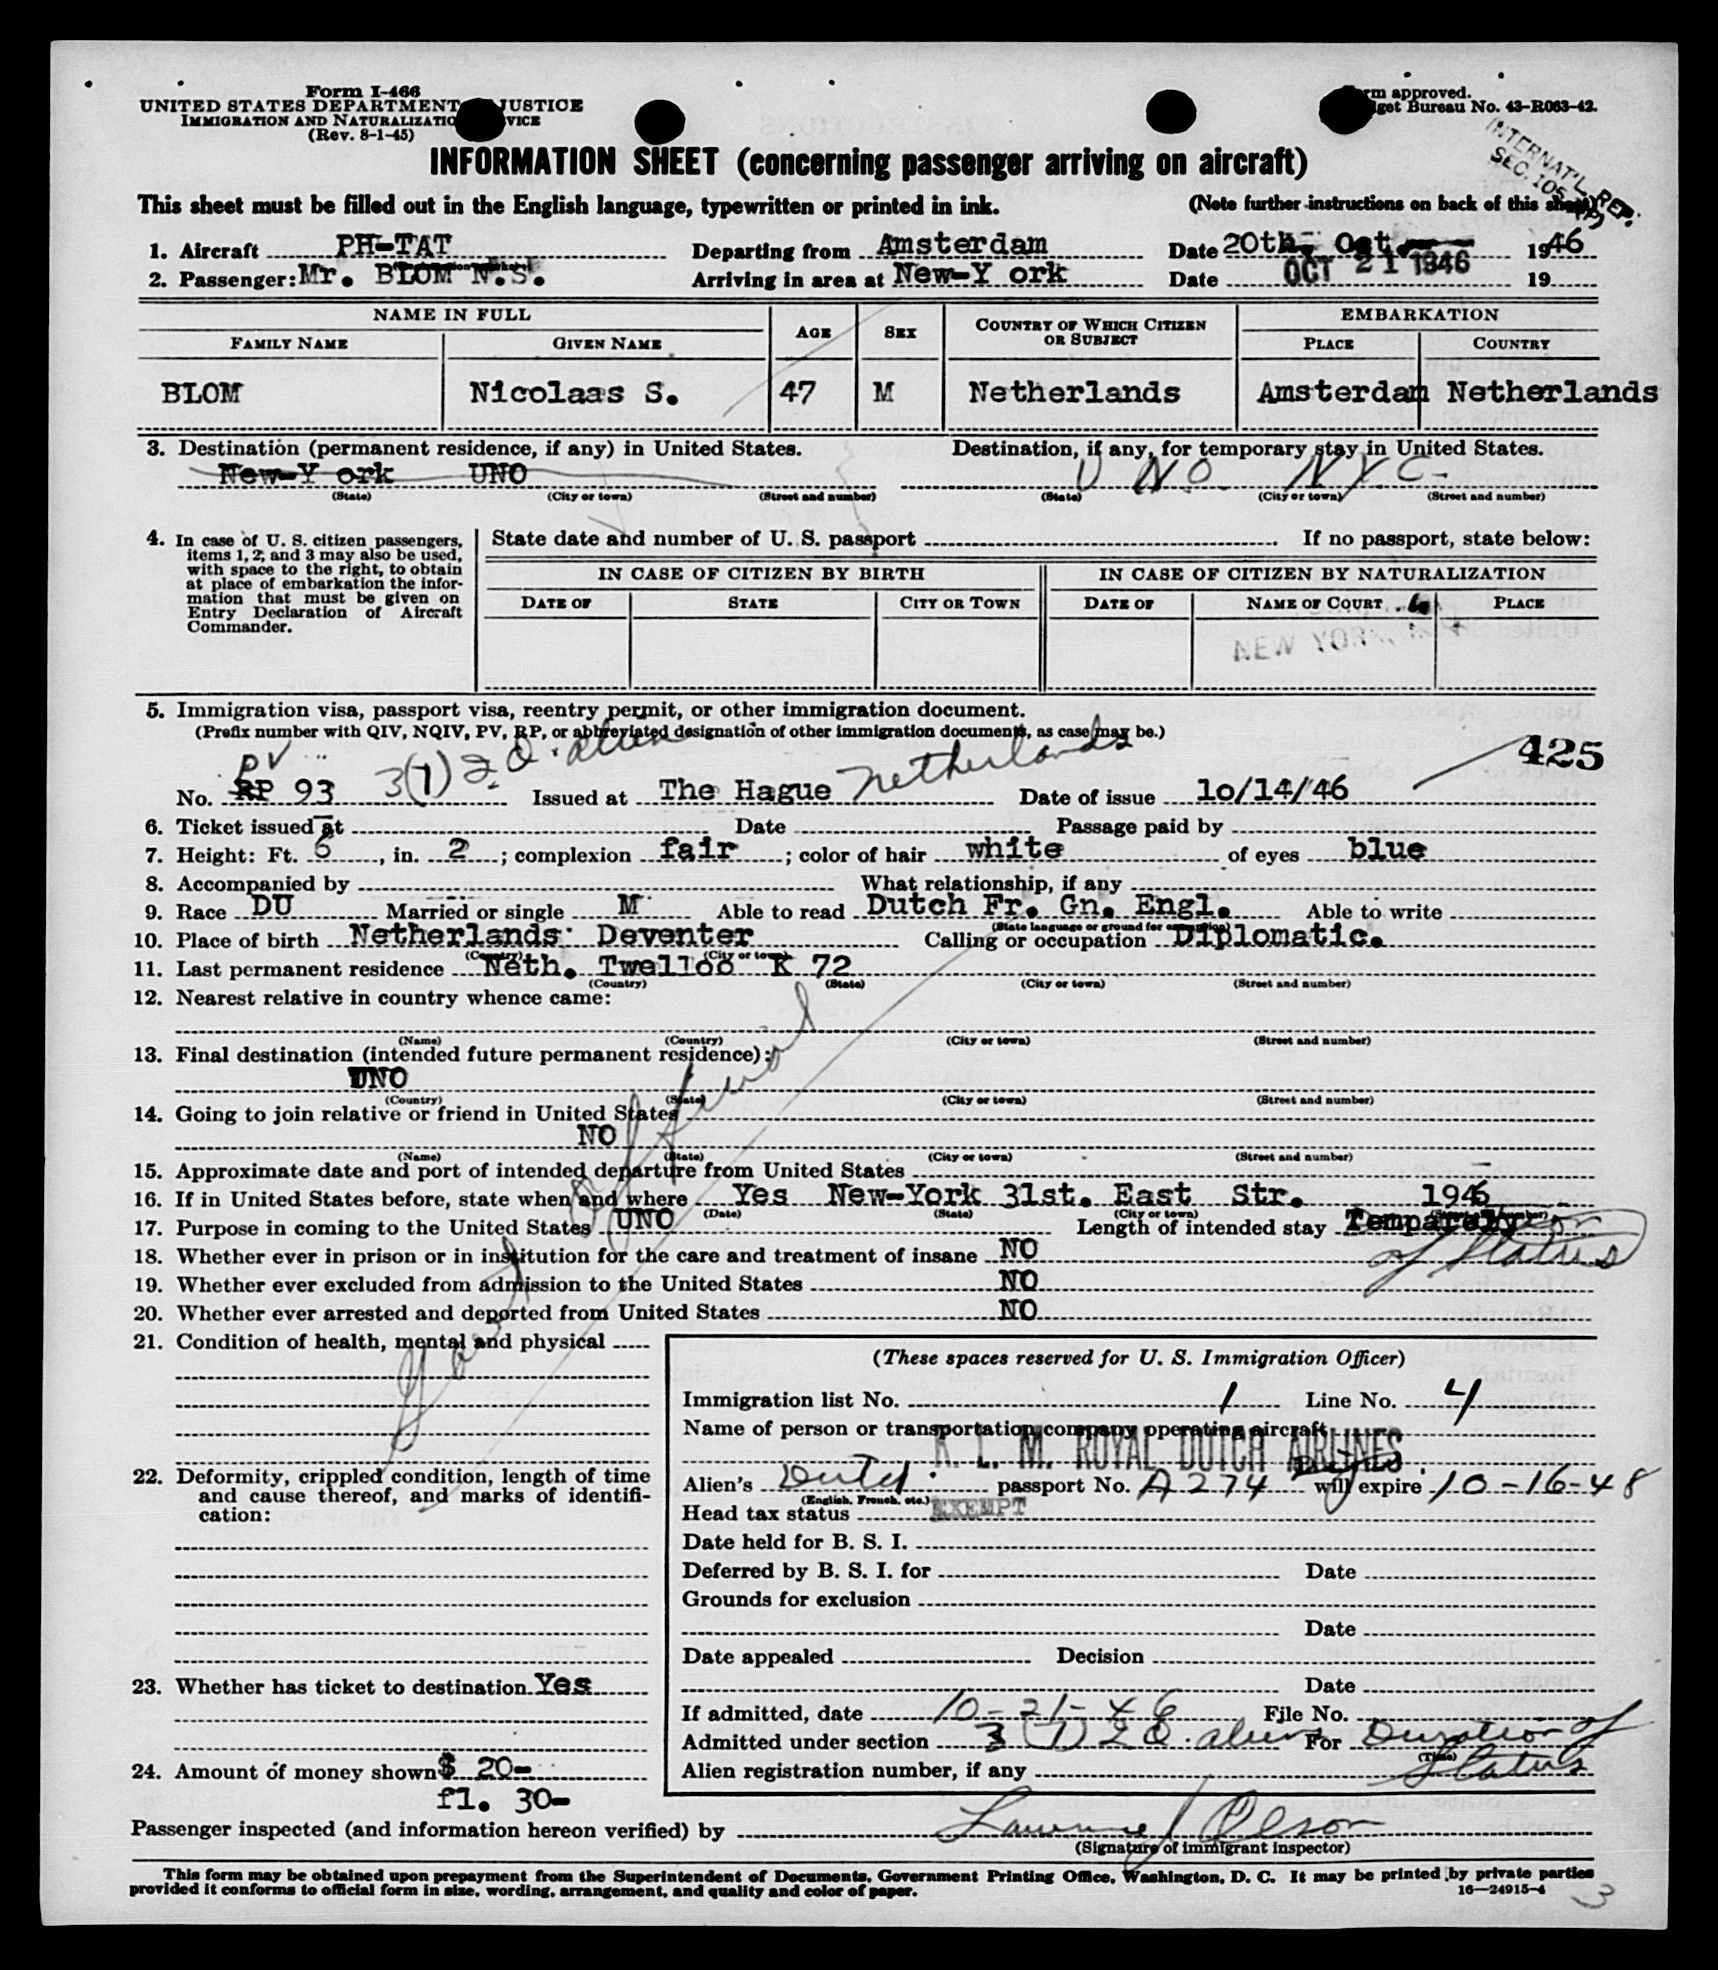 Form I-466
UNITED STATES DEPARTMENT JUSTICE
IMMIGRATION AND NATURALIZATIO VICE
(Rev. 8-1-45)
rm approved.
get Bureau No. 43-R063-42.
INTERNAT'L. REP.
SEC. 105
INFORMATION SHEET (concerning passenger arriving on aircraft)
This sheet must be filled out in the English language, typewritten or printed in ink. (Note further instructions on back of this sheet)
1. Aircraft PH-TAT Departing from Amsterdam Date 20th, Oct. 1946
2. Passenger: Mr. BLOM N.S. Arriving in area at New-Y ork Date OCT 21 1946 19
NAME IN FULL AGE SEX COUNTRY OF WHICH CITIZEN OR SUBJECT EMBARKATION
FAMILY NAME GIVEN NAME PLACE COUNTRY
BLOM Nicolaas S. 47 M Netherlands Amsterdam Netherlands
3. Destination (permanent residence, if any) in United States. Destination, if any, for temporary stay in United States.
New-Y ork UNO U N.O. N Y C -
(State) (City or town) (Street and number) (State) (City or town) (Street and number)
4. In case of U. S. citizen passengers, items 1, 2, and 3 may also be used, with space to the right, to obtain at place of embarkation the information that must be given on Entry Declaration of Aircraft Commander.
State date and number of U. S. passport If no passport, state below:
IN CASE OF CITIZEN BY BIRTH IN CASE OF CITIZEN BY NATURALIZATION
DATE OF STATE CITY OR TOWN DATE OF NAME OF COURT PLACE
NEW YORK, N.Y.
5. Immigration visa, passport visa, reentry permit, or other immigration document.
(Prefix number with QIV, NQIV, PV, RP, or abbreviated designation of other immigration documents, as case may be.)
425
No. RP PV 93 3(7) 2 O. alien Issued at The Hague Netherlands Date of issue 1o/14/46
6. Ticket issued at Date Passage paid by
7. Height: Ft. 6, in. 2; complexion fair; color of hair white of eyes blue
8. Accompanied by What relationship, if any
9. Race DU Married or single M Able to read Dutch Fr. Gn. Engl. Able to write
(State language or ground for exemption)
10. Place of birth Netherlands Deventer Calling or occupation Diplomatic.
(Country) (City or town)
11. Last permanent residence Neth. Twelloo K 72
(Country) (State) (City or town) (Street and number)
12. Nearest relative in country whence came:
(Name) (Country) (City or town) (Street and number)
13. Final destination (intended future permanent residence):
UNO
(Country) (State) (City or town) (Street and number)
14. Going to join relative or friend in United States
NO
(Name) (State) (City or town) (Street and number)
15. Approximate date and port of intended departure from United States
16. If in United States before, state when and where Yes New-York 31st. East Str. 1946
(Date) (State) (City or town) (Street and number)
17. Purpose in coming to the United States UNO Length of intended stay Temparely
of Status
18. Whether ever in prison or in institution for the care and treatment of insane NO
19. Whether ever excluded from admission to the United States NO
20. Whether ever arrested and deported from United States NO
Gov't Official
21. Condition of health, mental and physical
22. Deformity, crippled condition, length of time and cause thereof, and marks of identification:
23. Whether has ticket to destination. Yes
24. Amount of money shown $ 20-
fl. 30-
(These spaces reserved for U. S. Immigration Officer)
Immigration list No. 1 Line No. 4
Name of person or transportation company operating aircraft
K. L. M. ROYAL DUTCH AIRLINES
Alien's Dutch passport No. A274 will expire 10-16-48
(English, French, etc.)
Head tax status EXEMPT
Date held for B. S. I.
Deferred by B. S. I. for Date
Grounds for exclusion
Date
Date appealed Decision
Date
If admitted, date 10-21-46 File No.
Admitted under section 3 (7) 2 O. alien For Duration of Status
(Time)
Alien registration number, if any
Passenger inspected (and information hereon verified) by Lawrence J Olson
(Signature of immigrant inspector)
This form may be obtained upon prepayment from the Superintendent of Documents, Government Printing Office, Washington, D. C. It may be printed by private parties
provided it conforms to official form in size, wording, arrangement, and quality and color of paper. 16—24915-4
3